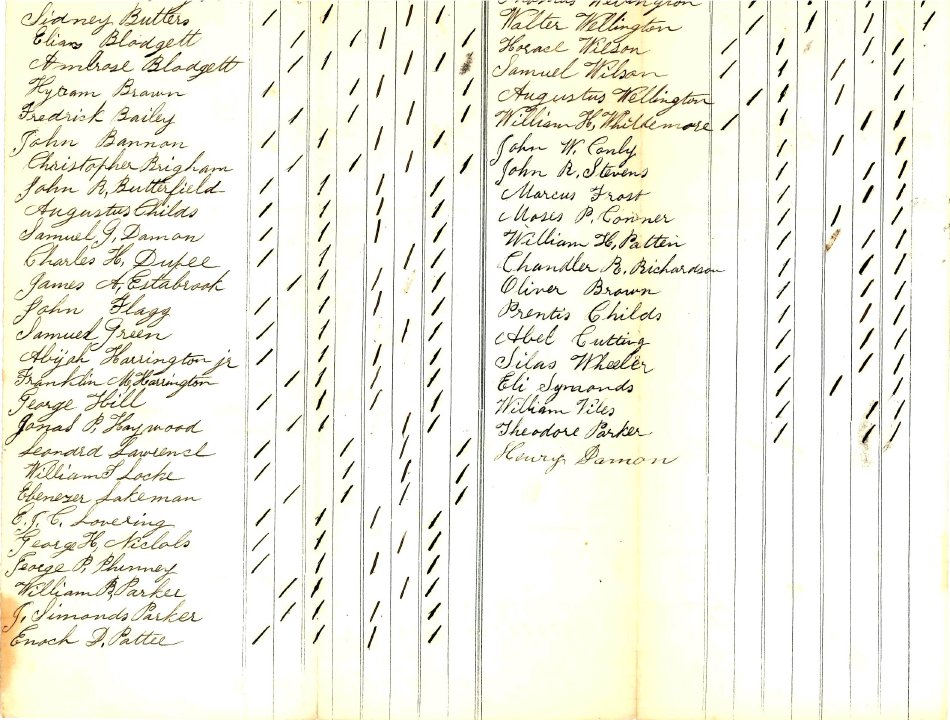 Sidney Butters
Elias Blodgett
Ambrose Blodgett
Hyram Brown
Fredrick Bailey
John Bannon
Christopher Brigham
John R, Butterfield
Augustus Childs
Samuel G, Damon
Charles H, Dupee
James A, Estabrook
John Flagg
Samuel Green
Abijah Harrington jr
Franklin M, Harrington
George Hill
Jonas P, Haywood
Leonard Lawrence
William S Locke
Ebenezer Lakeman
E. J. C. Lovering
George H, Nichols
George P, Phinney
William B, Parker
J, Simonds Parker
Enoch D, Pattee
Walter Wellington
Horace Wilson
Samuel Wilson
Augustus Wellington
William H, Whittemore
John W.
John R, Stevens
Marcus Frost
Moses P, Conner
William H, Patten
Chandler R, Richardson
Oliver Brown
Prentis Childs
Abel Cutting
Silas Wheeler
Eli Symonds
William Viles
Theodore Parker
Henry Damon